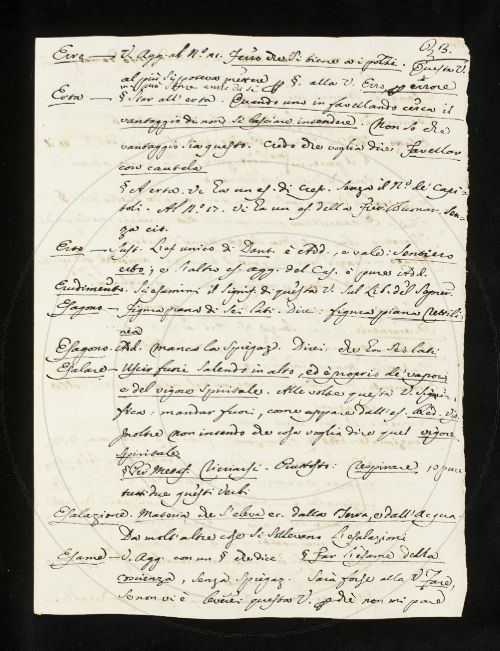 Erre — V. Agg. al N.º 11. Ferro che si tiene ai polsi. Questa V.
al più si poteva mettere § alla V. Erro errore
Erta — § Star all'erta. Quando uno in favellando cerca il
vantaggio di non si lasciare intendere. Non so che
vantaggio sia questo. Credo che voglia dire: Favellar
con cautela
§ A erta. Vi ha un es. di Cres. senza il N.º de' Capi-
toli. Al N.º 17. vi ha un es. della Fier. Buonar. sen-
za cit.
Erto — Sust. L'es. unico di Dant. è Add., e vale: Sentiero
erto; e l'altro es. agg. del Cas. è pure Add.
Erudimento. Si esamini il signif. di questa V. sul Lib. del Segner.
Esagono — Figura piana di sei lati. Direi: figura piana rettili-
nea
Esagono. Add. manca la spiegaz. Direi che ha sei lati
Esalare — Uscir fuori salendo in alto, ed è proprio de' vapori
e del vigore spiritale. Alle volte questa V. signi-
fica: mandar fuori, come appare dall'es.
Inoltre non intendo che cosa voglia dire quel vigore
spiritale
§ Per Metaf. Ricriarsi. Piuttosto: respirare, o pure
tutti due questi verbi
Esalazione. Materia che s'eleva ec. dalla Terra, e dall'Acqua.
Da molt'altre cose si sollevano l'esalazioni
Esame — V. Agg. con un § che dice § Far l'esame della
coscienza, senza spiegaz. Sarà forse alla V. Fare,
se non vi è leverei questa V. perchè non mi pare